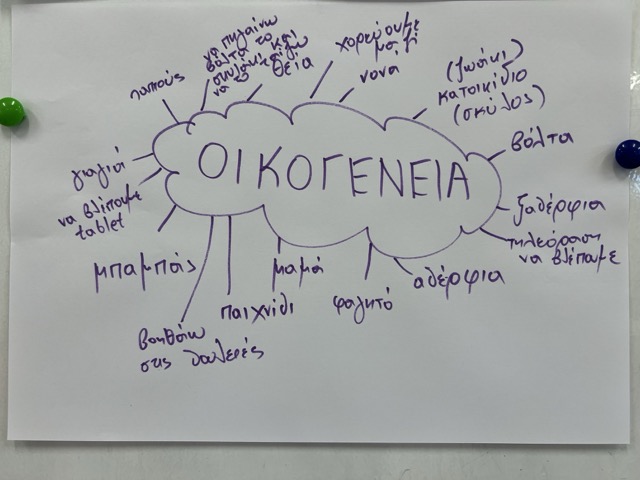 παππούς
να πηγαίνω
βόλτα το
σκυλάκι και
να το ταΐζω
θεία
χορεύουμε
μαζί
νονα
(ζωάκι)
κατοικίδιο
(σκύλος)
βόλτα
ξαδέρφια
τηλεόραση
να βλέπουμε
αδέρφια
φαγητό
μαμά
παιχνίδι
βοηθάω
στις δουλειές
μπαμπάς
να βλέπουμε
tablet
γιαγιά
ΟΙΚΟΓΕΝΕΙΑ